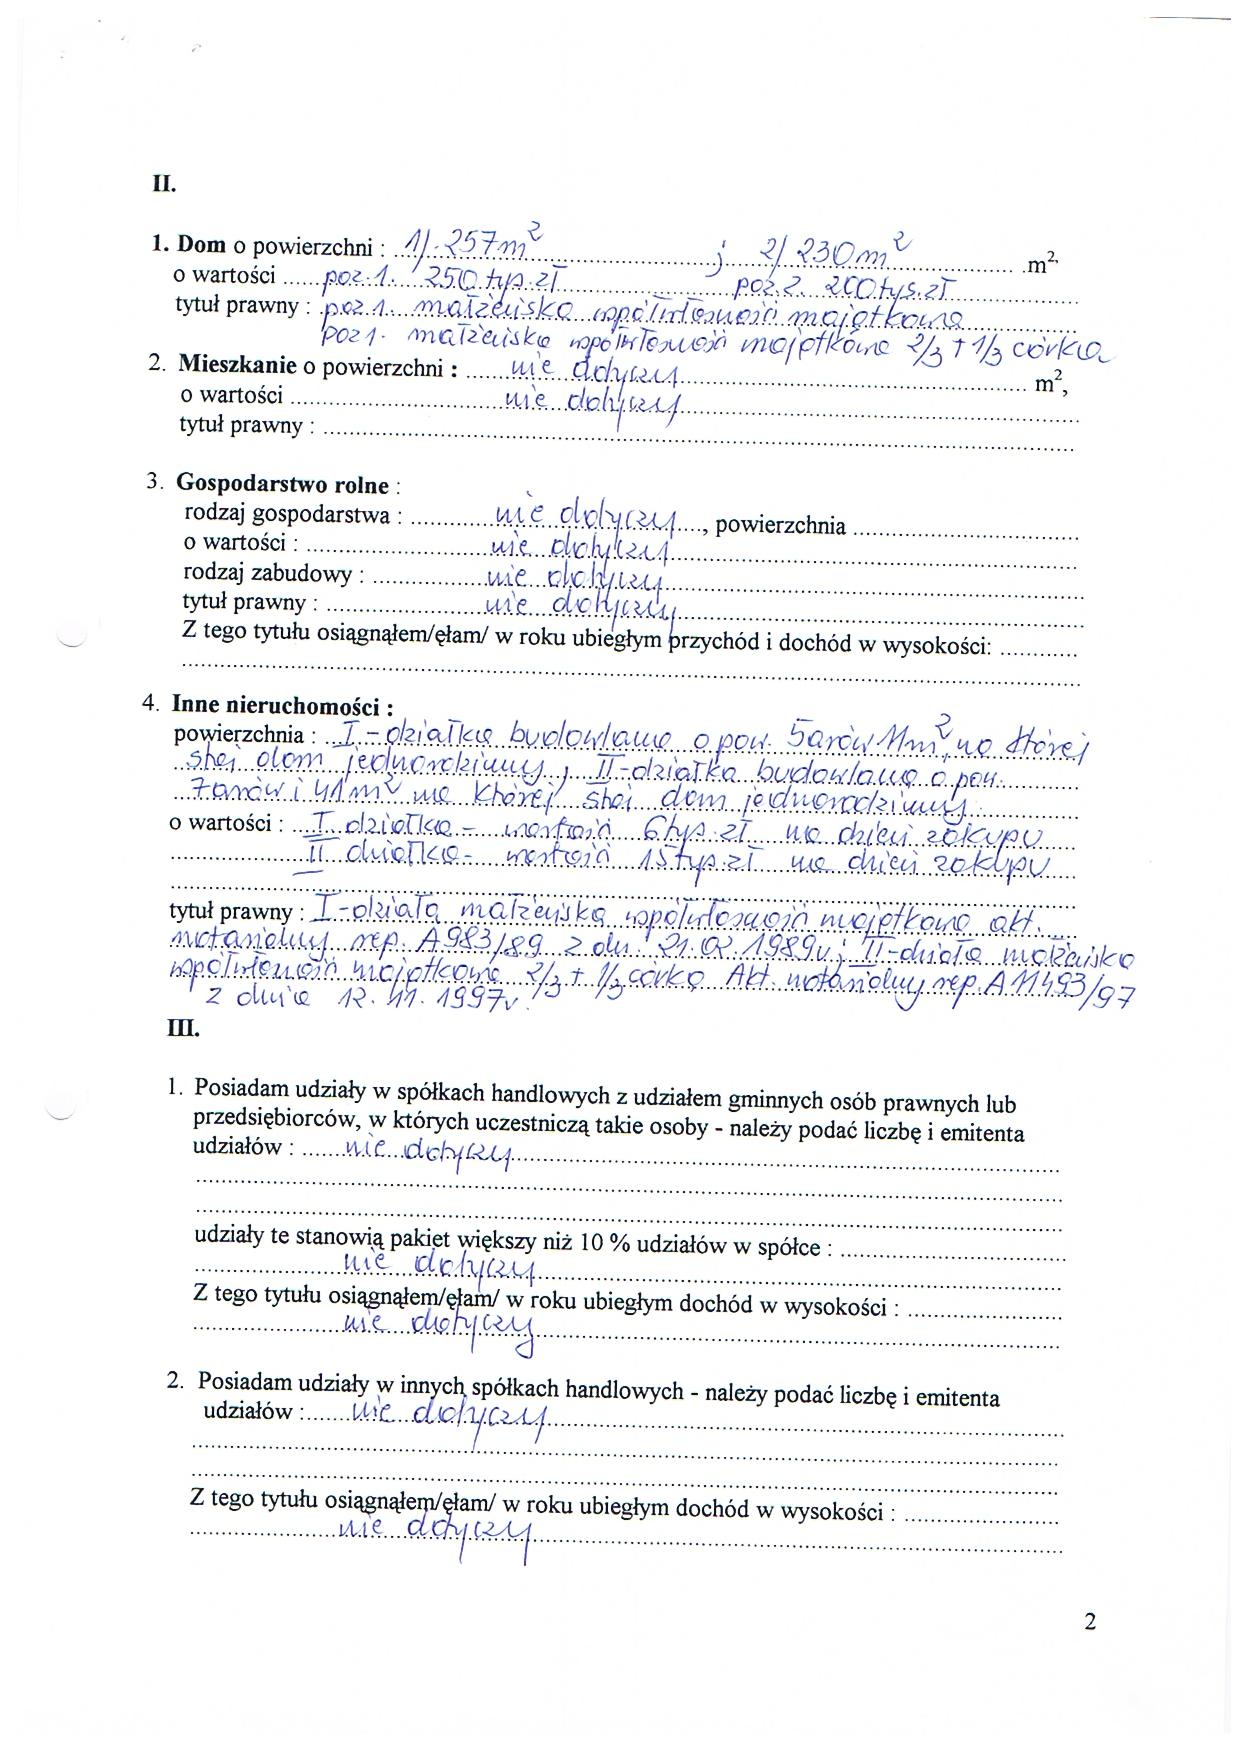 II.
1. Dom o powierzchni : 1/. 257m² ; 2/ 230m² m²,
o wartości poz. 1. 250 tys. zł poz. 2. 200 tys. zł
tytuł prawny : poz 1. małżeńska współwłasność majątkowa
poz 1. małżeńska współwłasność majątkowa 2/3 + 1/3 córka
2. Mieszkanie o powierzchni : nie dotyczy m²,
o wartości nie dotyczy
tytuł prawny :
3. Gospodarstwo rolne :
rodzaj gospodarstwa : nie dotyczy, powierzchnia
o wartości : nie dotyczy
rodzaj zabudowy : nie dotyczy
tytuł prawny : nie dotyczy
Z tego tytułu osiągnąłem/ęłam/ w roku ubiegłym przychód i dochód w wysokości:
4. Inne nieruchomości :
powierzchnia : I. - działka budowlana o pow. 5arów 11m² na której
stoi dom jednorodzinny ; II - działka budowlana o pow.
7arów i 41m² na której stoi dom jednorodzinny.
o wartości : I. działka - wartość 6tys. zł na dzień zakupu
II działka - wartość 15tys. zł na dzień zakupu
tytuł prawny : I - działa małżeńska współwłasność majątkowa akt.
notarialny rep. A 983/89 z dn. 21.02.1989r ; II - działa małżeńska
współwłasność majątkowa 2/3 + 1/3 córka Akt. notarialny rep. A 11493/97
z dnia 12.11.1997r.
III.
1. Posiadam udziały w spółkach handlowych z udziałem gminnych osób prawnych lub
przedsiębiorców, w których uczestniczą takie osoby - należy podać liczbę i emitenta
udziałów : nie dotyczy
udziały te stanowią pakiet większy niż 10 % udziałów w spółce :
nie dotyczy
Z tego tytułu osiągnąłem/ęłam/ w roku ubiegłym dochód w wysokości :
nie dotyczy
2. Posiadam udziały w innych spółkach handlowych - należy podać liczbę i emitenta
udziałów : nie dotyczy
Z tego tytułu osiągnąłem/ęłam/ w roku ubiegłym dochód w wysokości :
nie dotyczy
2